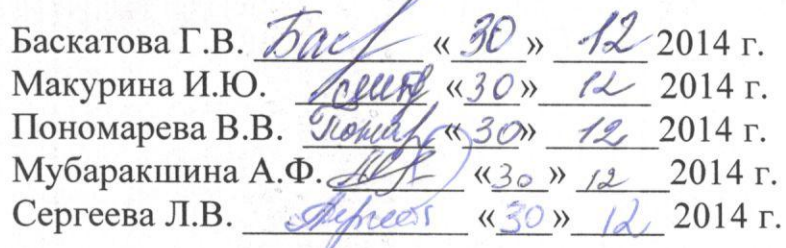 Баскатова Г.В. Бас «30» 12 2014 г.
Макурина И.Ю. «30» 12 2014 г.
Пономарева В.В. Поном «30» 12 2014 г.
Мубаракшина А.Ф. «30» 12 2014 г.
Сергеева Л.В. «30» 12 2014 г.